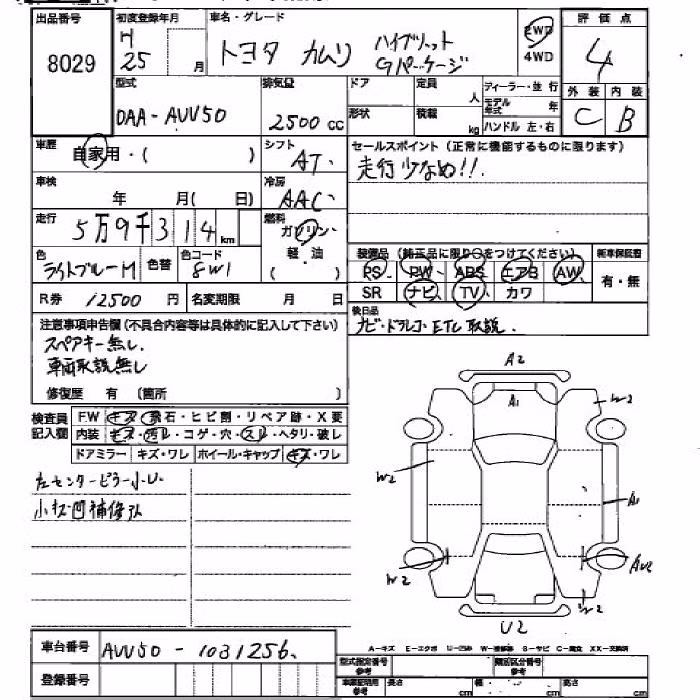 出品番号 初度登録年月 車名・グレード 評価点
8029 H 25 月 トヨタ カムリ ハイブリット Gパッケージ 2WD 4WD 4
型式 排気量 ドア 定員 人 ディーラー・並行 外装 内装
DAA-AVV50 2500 cc 形状 積載 kg モデル年式 年 ハンドル 左・右 C B
車歴 自家用・( ) シフト AT. セールスポイント (正常に機能するものに限ります)
走行少なめ!!.
車検 年 月( 日) 冷房 AAC
走行 5万9千314 km 燃料 ガソリン・軽油
色 ライトブルーM 色替 色コード 8W1
装備品 (純正品に限り○をつけてください) 新車保証書
PS PW ABS エアB AW 有・無
SR ナビ TV カワ
R券 12500 円 名変期限 月 日
後日品
ナビ・ドラレコ・ETC取説.
注意事項申告欄 (不具合内容等は具体的に記入して下さい)
スペアキー無し.
車両取説無し
修復歴 有 (箇所 )
検査員記入欄 F.W キズ・飛石・ヒビ割・リペア跡・X要
内装 キズ・汚レ・コゲ・穴・スレ・ヘタリ・破レ
ドアミラー キズ・ワレ ホイール・キャップ キズ・ワレ
左センターピラー小U.
小キズ凹補修込
A2
A1
W2
W2
A1
W2
AU2
W2
U2
A-キズ E-エクボ U-凹み W-補修跡 S-サビ C-腐食 XX-交換済
車台番号 AVV50-1031256
登録番号
型式指定番号 参考 類別区分番号 参考
車庫証明用 参考 長さ cm 幅 cm 高さ cm